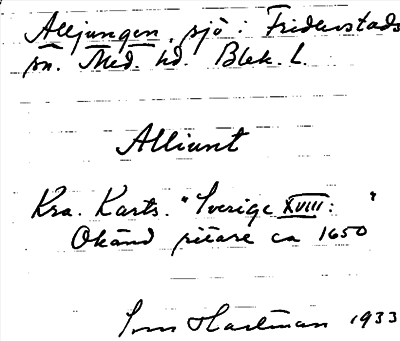 Alljungen, sjö i Fridlevstads
sn. Med. hd. Blek. l.
Alljunt
Kra. Karts. "Sverige XVIII: "
Okänd ritare ca 1650
Hartman 1933